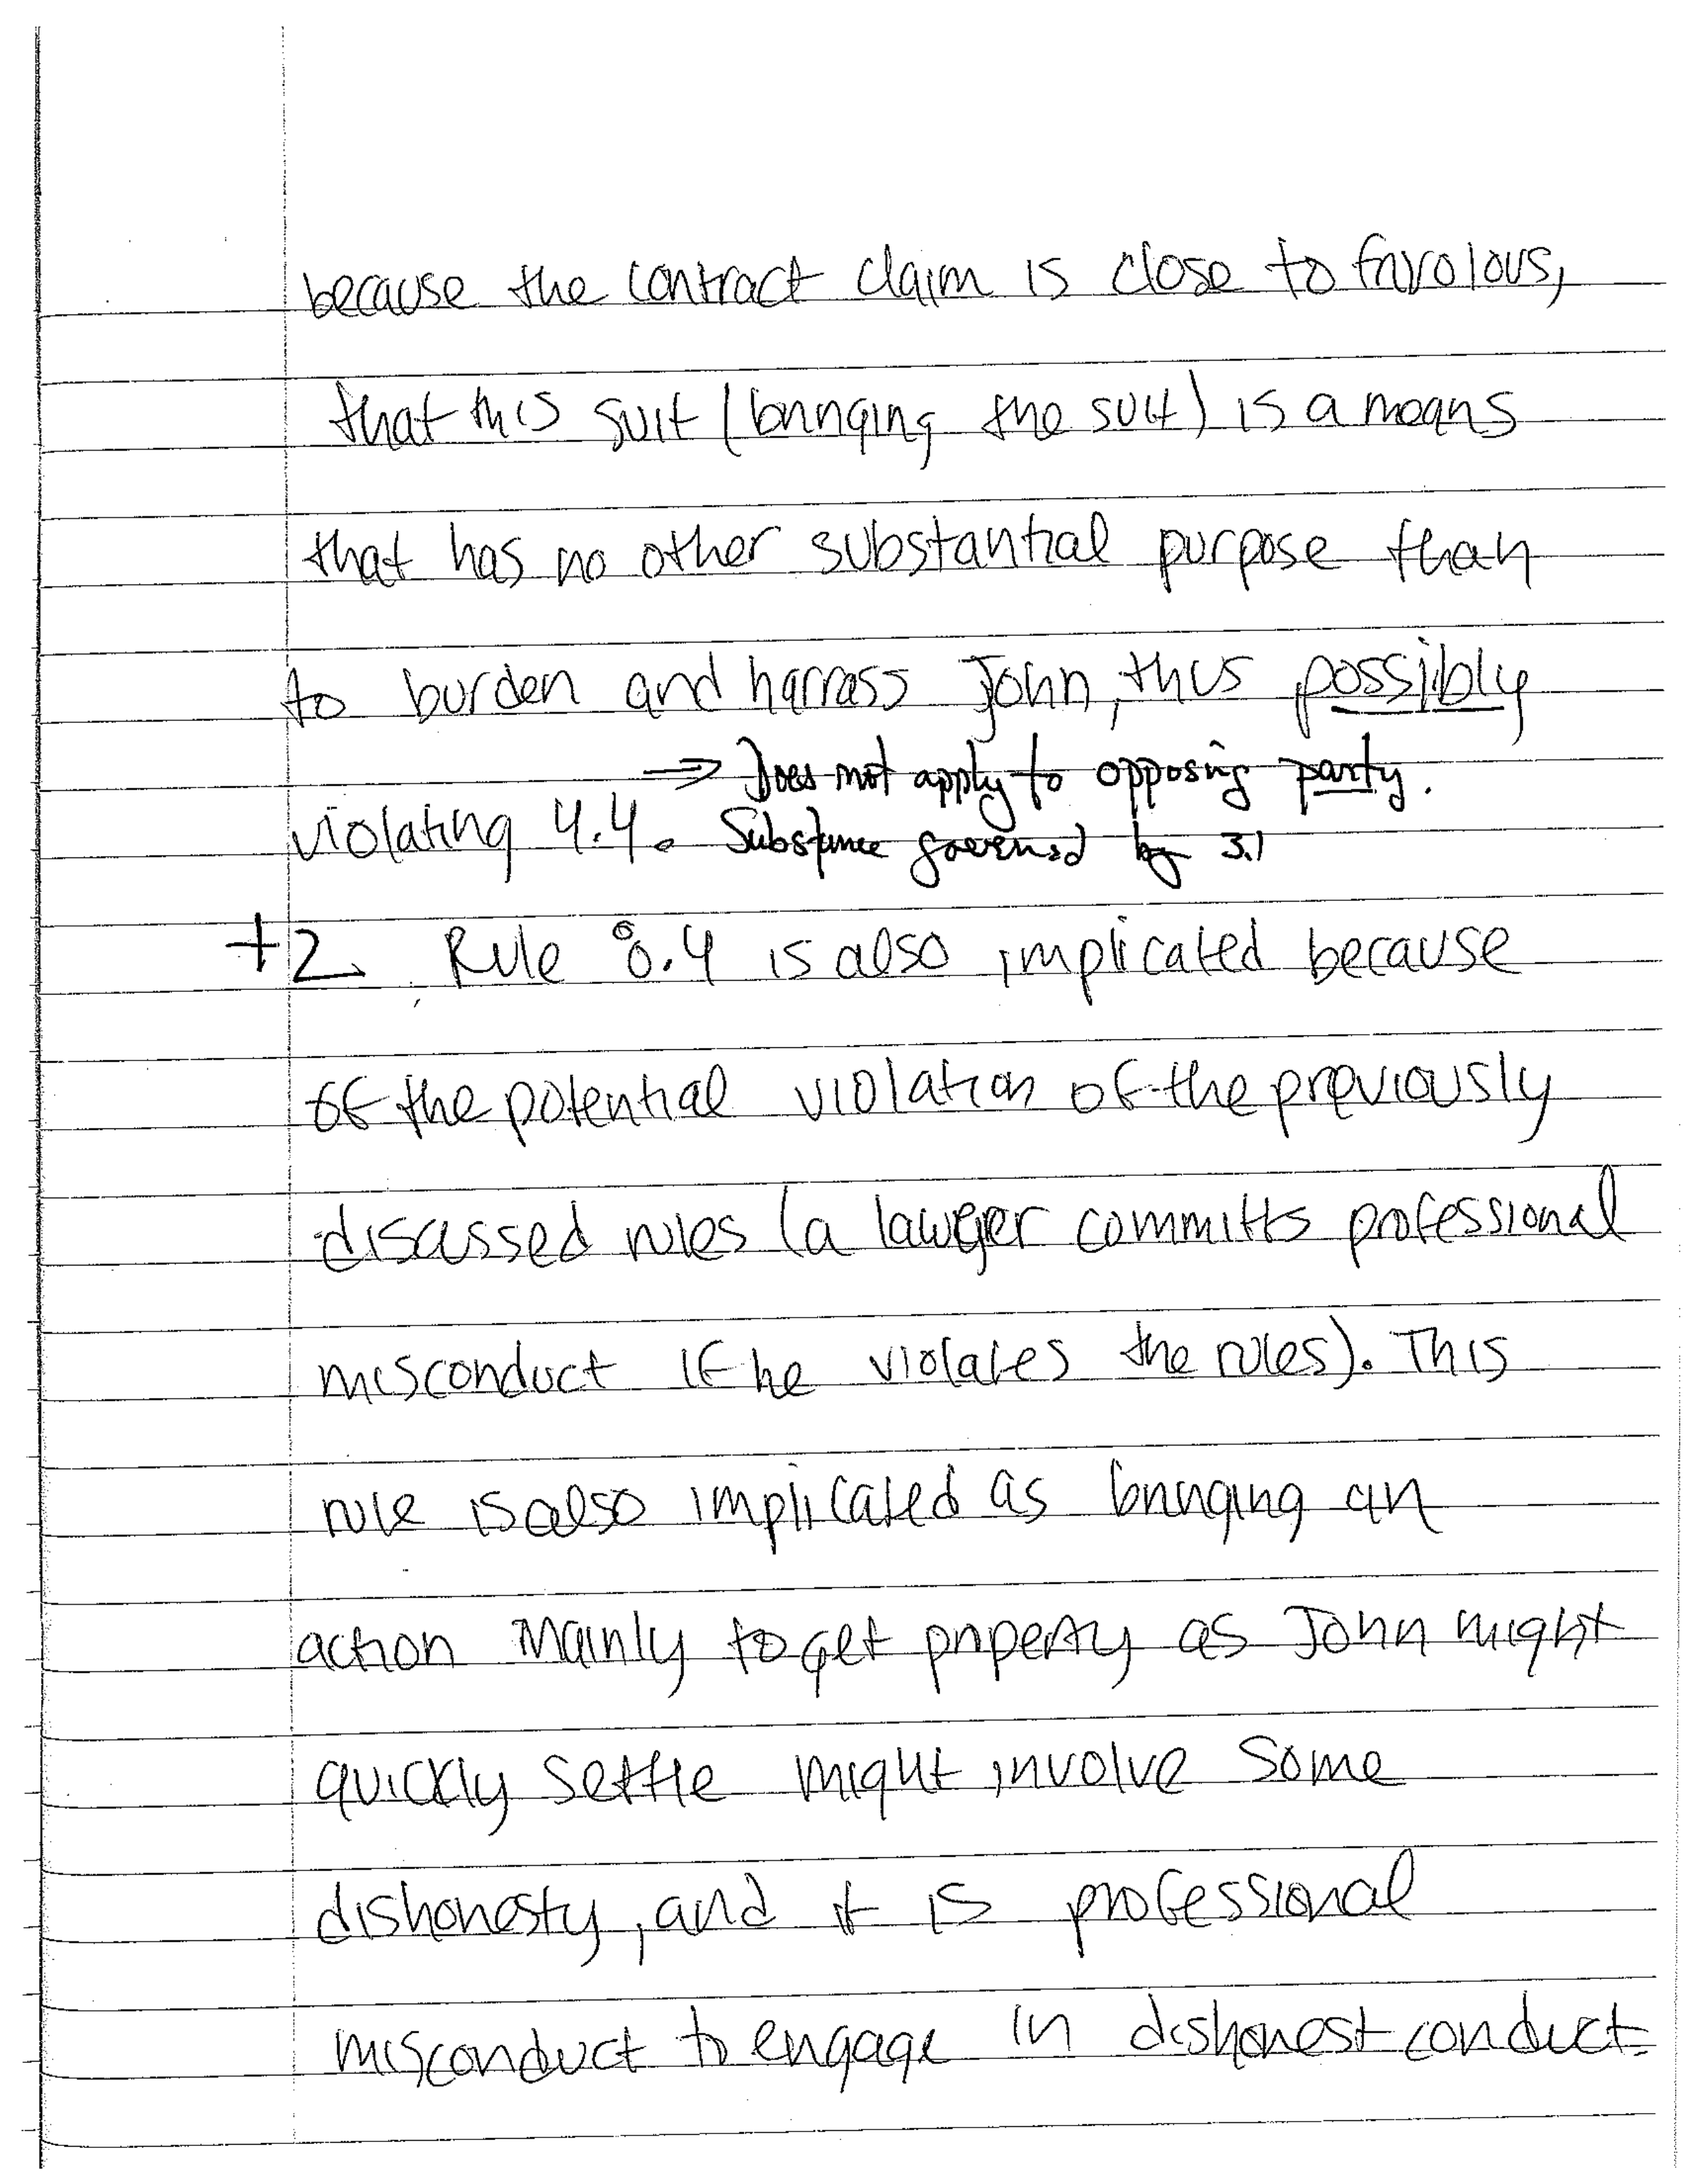 because the contract claim is close to frivolous,
that this suit (bringing the suit) is a means
that has no other substantial purpose than
to burden and harrass John, thus possibly
⇒ Does not apply to opposing party.
violating 4.4. Substance governed by 3.1
+2 Rule 8.4 is also implicated because
of the potential violation of the previously
discussed rules (a lawyer committs professional
misconduct if he violates the rules). This
rule is also implicated as bringing an
action mainly to get property as John might
quickly settle might involve some
dishonesty, and it is professional
misconduct to engage in dishonest conduct.